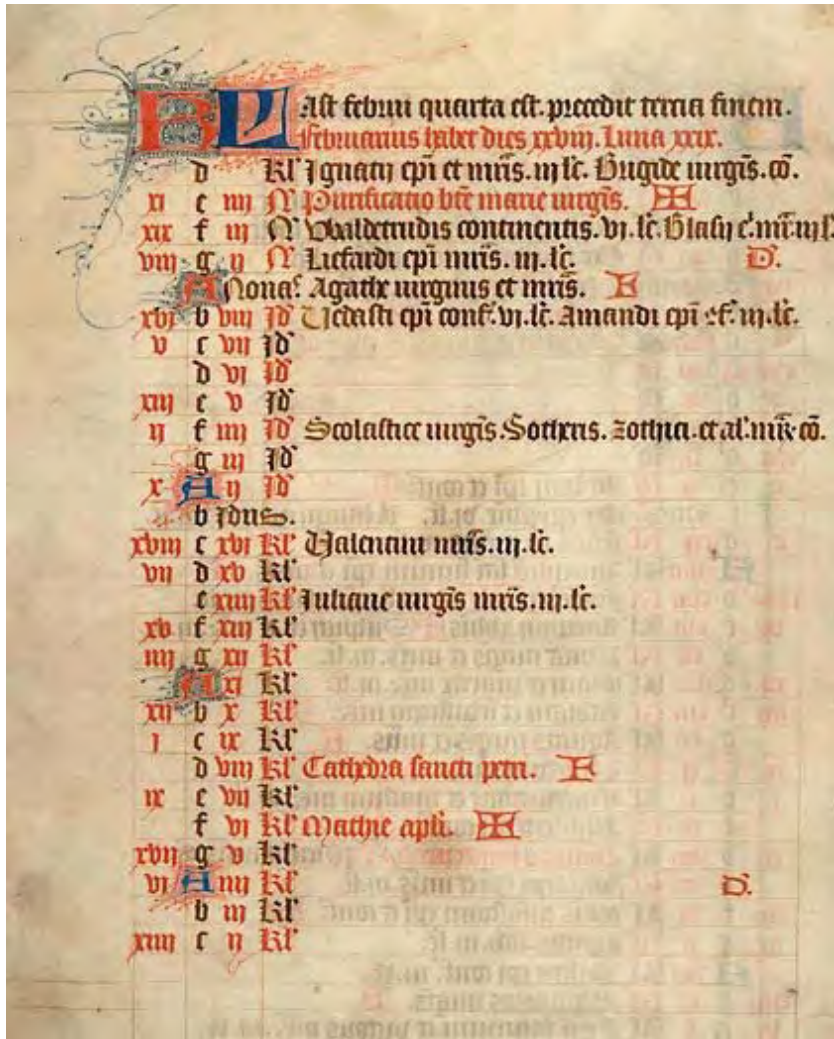 KL Ast februi quarta est. precedit tercia finem.
Februarius habet dies xxviii. Luna xxix.
d Kl' Ignatij epi et mris. iij lc. Brigide uirgis. co.
xi e iiij N Purificatio bte marie uirgis.
xix f iij N Vbaldetrudis continentis. vj. lc. Blasij
viij g ij N epi mris. iij. lc. D.
A Nonas. Agathe uirginis et mris.
xvj b viij Jd' Vedasti epi conf. vj. lc. Amandi epi iij. lc.
v c vij Jd'
d vj Jd'
xiij e v Jd'
ij f iiij Jd' Scolastice uirgis. Sotheris. zothici. et al.
g iij Jd'
x A ij Jd'
b Jdus.
xviij c xvj Kl' Valentini mris. iij. lc.
vij d xv Kl'
e xiiij Kl' Iuliane uirgis mris. iij. lc.
xv f xiij Kl'
iiij g xij Kl'
A xj Kl'
xij b x Kl'
j c ix Kl'
d viij Kl' Cathedra sancti petri.
ix e vij Kl'
f vj Kl' Mathie apli.
xvij g v Kl'
vj A iiij Kl' D.
b iij Kl'
xiiij c ij Kl'